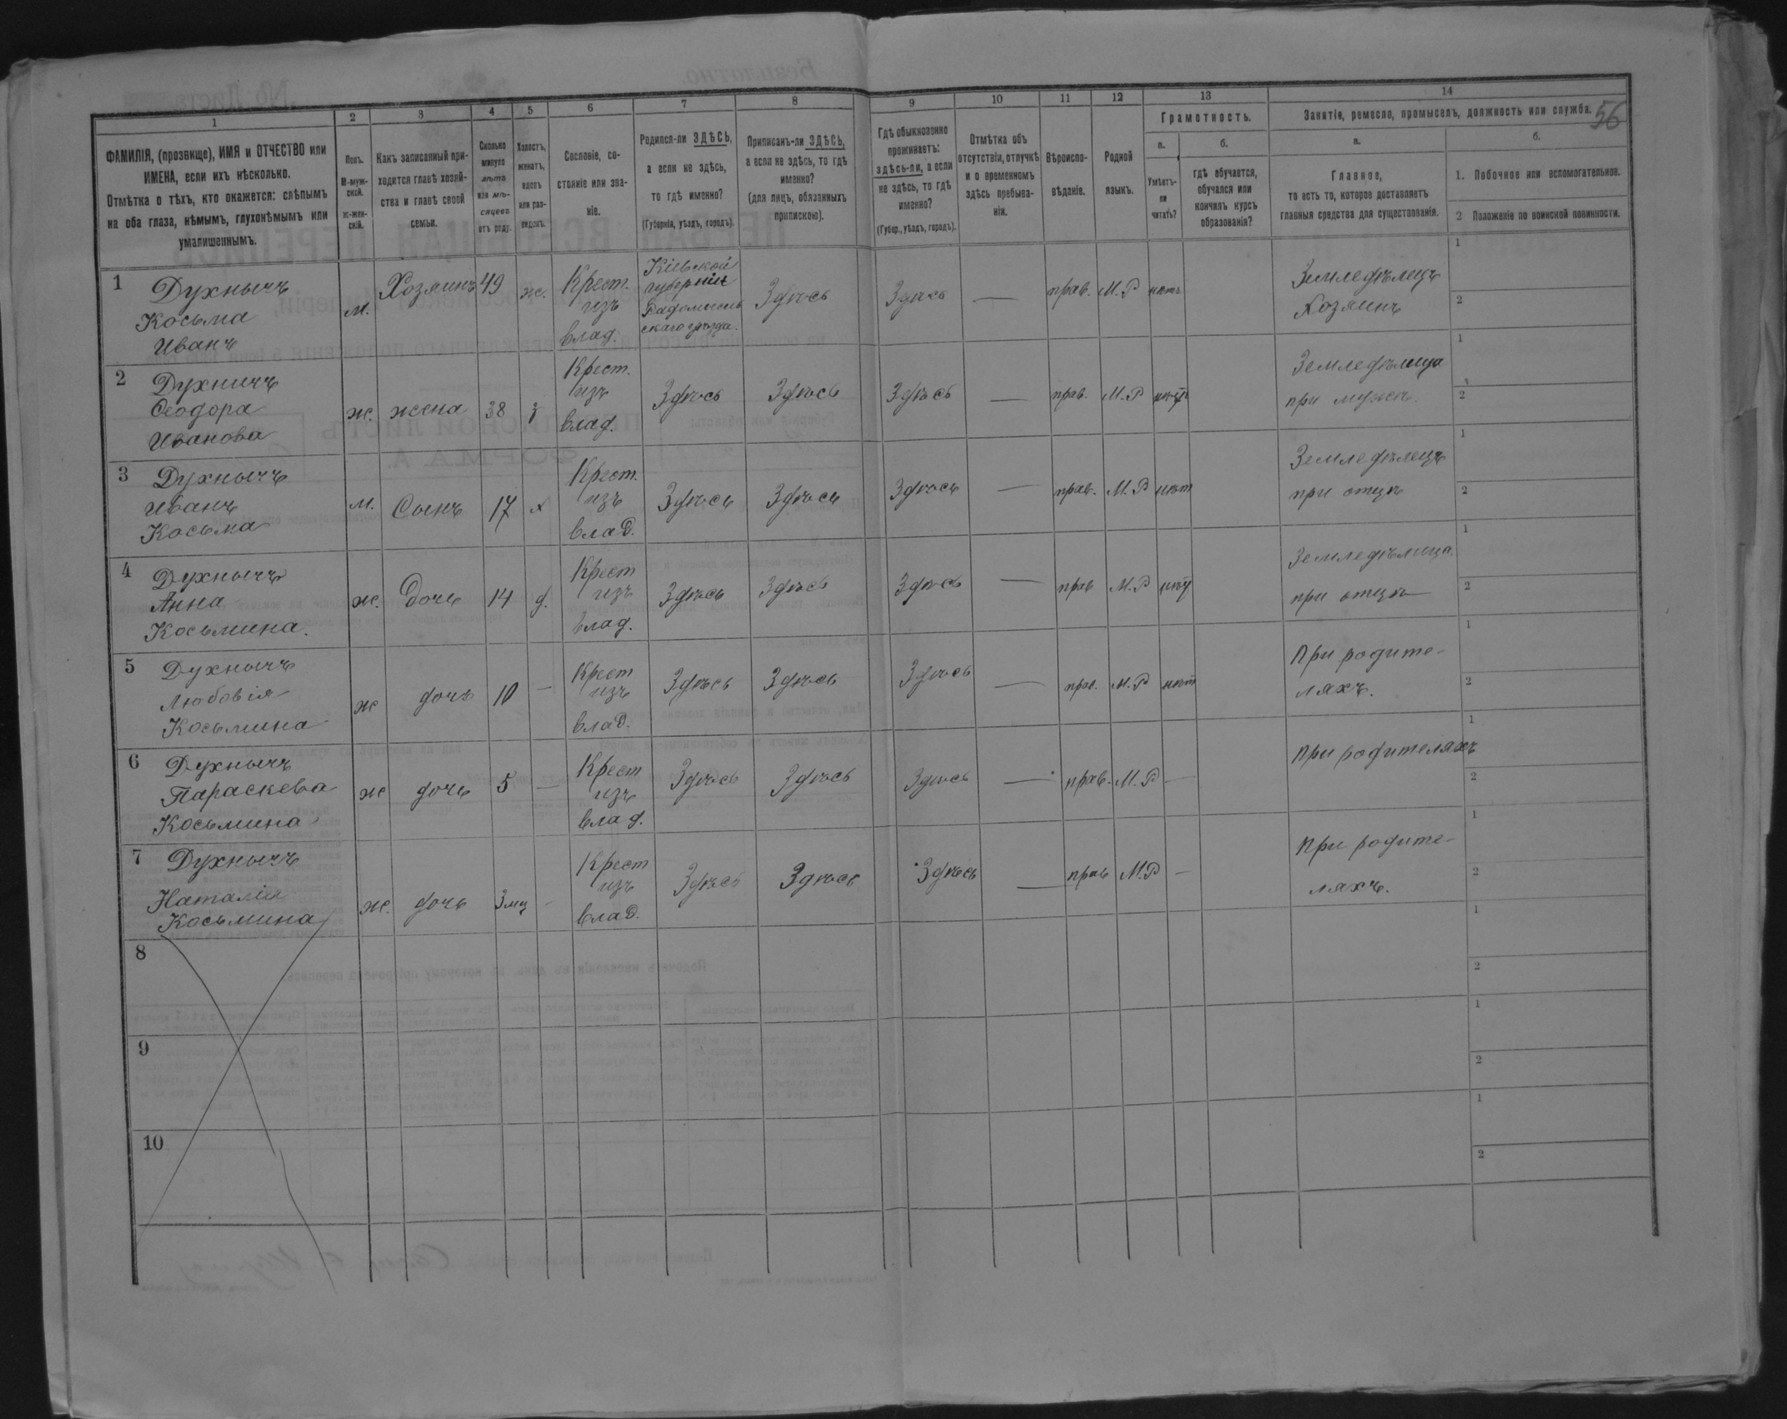 56
1 2 3 4 5 6 7 8 9 10 11 12 13 14
ФАМИЛІЯ, (прозвище), ИМЯ и ОТЧЕСТВО или
ИМЕНА, если ихъ нѣсколько.
Отмѣтка о тѣхъ, кто окажется: слѣпымъ
на оба глаза, нѣмымъ, глухонѣмымъ или
умалишеннымъ.
Полъ.
М-муж-
ской.
Ж-жен-
скій.
Какъ записанный при-
ходится главѣ хозяй-
ства и главѣ своей
семьи.
Сколько
минуло
лѣтъ
или мѣ-
сяцевъ
отъ роду.
Холостъ,
женатъ,
вдовъ
или раз-
веденъ.
Сословіе, со-
стояніе или зва-
ніе.
Родился-ли ЗДѢСЬ,
а если не здѣсь,
то гдѣ именно?
(Губернія, уѣздъ, городъ).
Приписанъ-ли ЗДѢСЬ,
а если не здѣсь, то гдѣ
именно?
(для лицъ, обязанныхъ
припискою).
Гдѣ обыкновенно
проживаетъ:
здѣсь-ли, а если
не здѣсь, то гдѣ
именно?
(Губер., уѣздъ, городъ).
Отмѣтка объ
отсутствіи, отлучкѣ
и о временномъ
здѣсь пребыва-
ніи.
Вѣроиспо-
вѣданіе.
Родной
языкъ.
Грамотность.
а.
Умѣетъ-
ли
читать?
б.
гдѣ обучается,
обучался или
кончилъ курсъ
образованія?
Занятіе, ремесло, промыселъ, должность или служба.
а.
Главное,
то есть то, которое доставляетъ
главныя средства для существованія.
б.
1. Побочное или вспомогательное.
2 Положеніе по воинской повинности.
1
Духнычъ
Косьма
Иванъ
м.
Хозяинъ
49
ж.
Крест.
изъ
влад.
Кіевской
губерніи
Радомысль
скаго уѣзда.
Здѣсь
Здѣсь
—
прав.
М.Р
нѣтъ
Земледѣлецъ
Хозяинъ
1
2
2
Духничъ
Ѳеодора
Иванова
ж.
жена
38
з
Крест.
изъ
влад.
Здѣсь
Здѣсь
Здѣсь
—
прав.
М.Р
нѣтъ
Земледѣлица
при мужѣ.
1
2
3
Духнычъ
Иванъ
Косьма
м.
Сынъ
17
х
Крест.
изъ
влад.
Здѣсь
Здѣсь
Здѣсь
—
прав.
М.Р
нѣт
Земледѣлецъ
при отцѣ
1
2
4
Духнычъ
Анна
Косьмина.
ж.
дочь
14
д.
Крест
изъ
влад.
Здѣсь
Здѣсь
Здѣсь
—
прав
М.Р
нѣт
Земледѣлица
при отцѣ
1
2
5
Духнычъ
Любовія
Косьмина
ж
дочь
10
—
Крест
изъ
влад.
Здѣсь
Здѣсь
Здѣсь
—
прав.
М.Р
нѣт
При родите-
ляхъ.
1
2
6
Духнычъ
Параскева
Косьмина
ж
дочь
5
—
Крест
изъ
влад.
Здѣсь
Здѣсь
Здѣсь
—
прав.
М.Р
—
При родителяхъ
1
2
7
Духнычъ
Наталія
Косьмина
ж.
дочь
3мц
-
Крест
изъ
влад.
Здѣсь
Здѣсь
Здѣсь
—
прав
М.Р
—
При родите-
ляхъ.
1
2
8
1
2
9
1
2
10
1
2